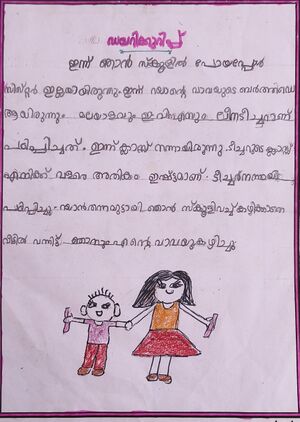 ഡയറിക്കുറിപ്പ്
ഇന്ന് ഞാൻ സ്കൂളിൽ പോയപ്പോൾ
സിസ്റ്റർ ഇല്ലായിരുന്നു. ഇന്ന് വാവയുടെ ബർത്ത്ഡെ
ആയിരുന്നു. മലയാളവും ഇവിഎസും ലീനടീച്ചറാണ്
പഠിപ്പിച്ചത്. ഇന്ന് ക്ലാസ്സ് നന്നായിരുന്നു. ടീച്ചറുടെ ക്ലാസ്സ്
എനിക്ക് വളരെ അതികം ഇഷ്ട്ടമാണ്. ടീച്ചർ
പഠിപ്പിച്ചു. ഞാൻ സ്കൂളിവച്ച് കഴിക്കാതെ
വീട്ടിൽ വന്നിട്ട് ഞാനും എന്റെ വാവയുകഴിച്ചു